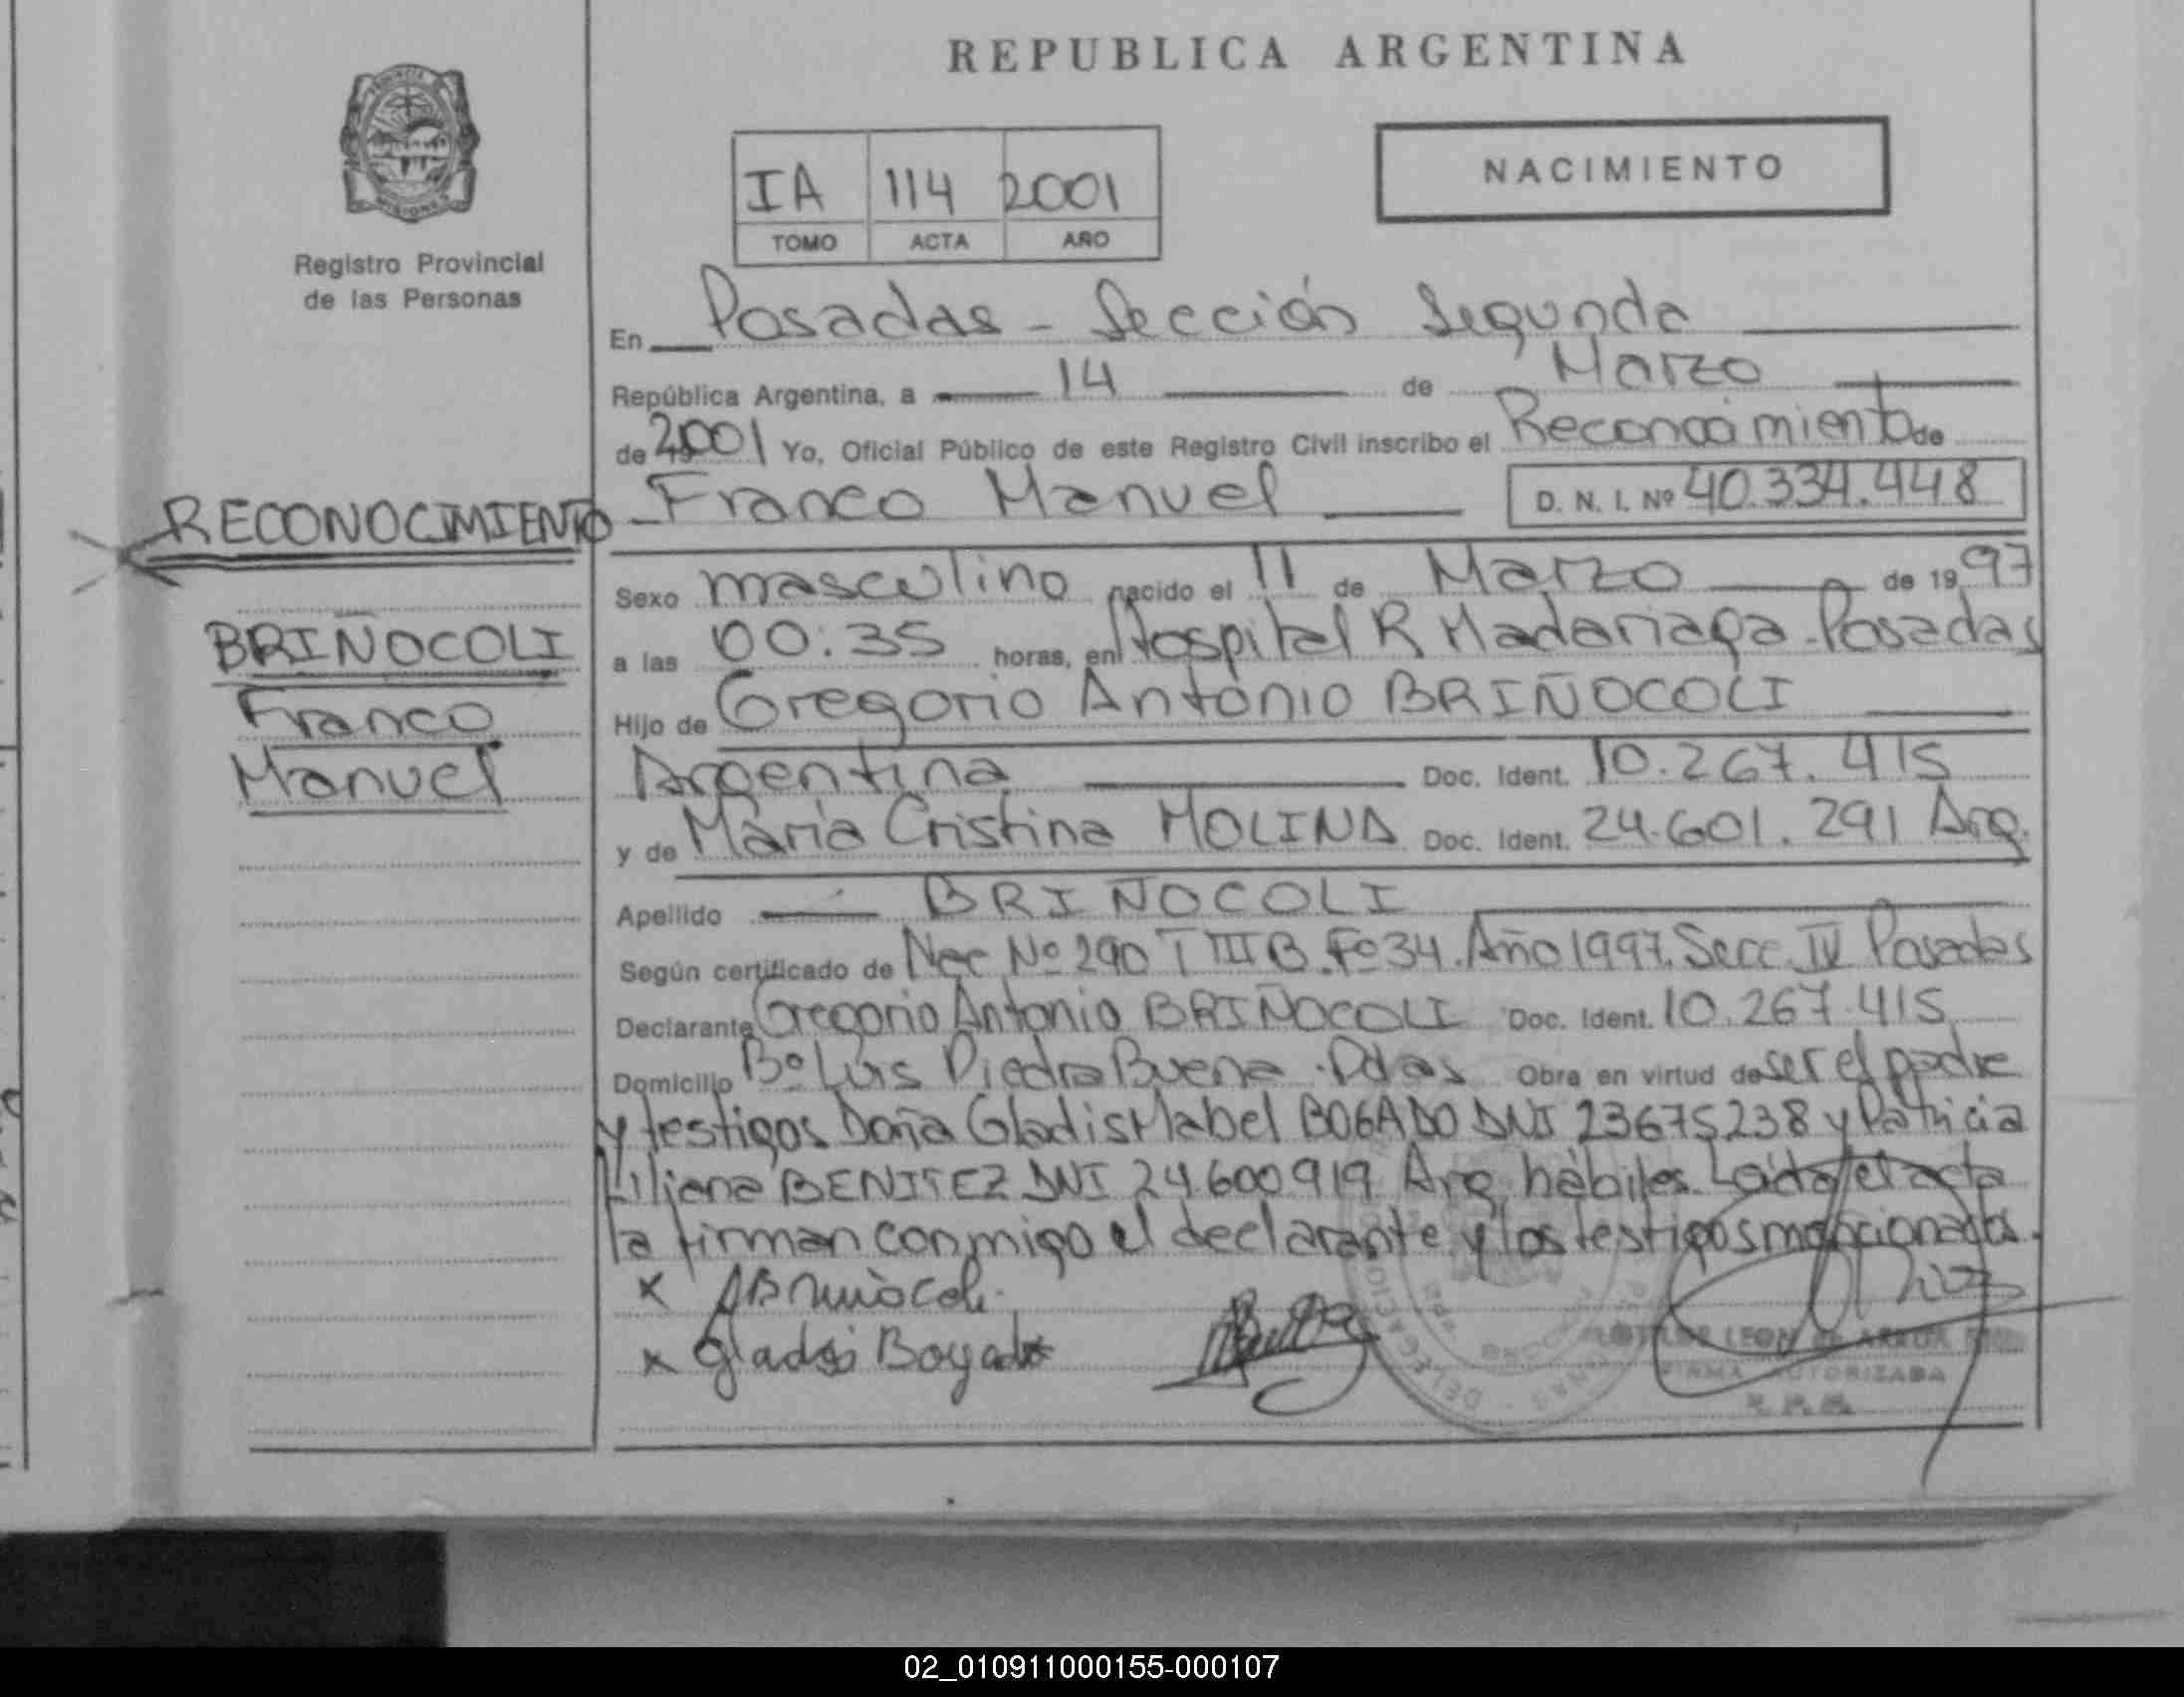 REPUBLICA ARGENTINA
PROVINCIA
MISIONES
Registro Provincial
de las Personas
IA 114 2001
TOMO ACTA AÑO
NACIMIENTO
En Posadas - Sección Segunda
República Argentina, a 14 de Marzo
de 2001 Yo, Oficial Público de este Registro Civil inscribo el Reconocimiento de
Franco Manuel D. N. I. Nº 40.334.448
RECONOCIMIENTO
BRIÑOCOLI
Franco
Manuel
Sexo masculino nacido el 11 de Marzo de 1997
a las 00:35 horas, en Hospital R Madariaga - Posadas
Hijo de Gregorio Antonio BRIÑOCOLI
Argentina Doc. Ident. 10.267.415
y de María Cristina MOLINA Doc. Ident. 24.601.291 Arg.
Apellido BRIÑOCOLI
Según certificado de Nac Nº 290 T III B. Fº 34. Año 1997. Secc. IV Posadas
Declarante Gregorio Antonio BRIÑOCOLI Doc. Ident. 10.267.415
Domicilio Bº Luis Piedra Buena - Pdas Obra en virtud de ser el padre
y testigos Doña Gladis Mabel BOGADO DNI 23675238 y Patricia
Liliana BENITEZ DNI 24.600.919 Arg. hábiles. Leída el acta
la firman conmigo el declarante y los testigos mencionados.
x ABriñocoli
x Gladis Bogado
LEON de
FIRMA AUTORIZADA
02_010911000155-000107